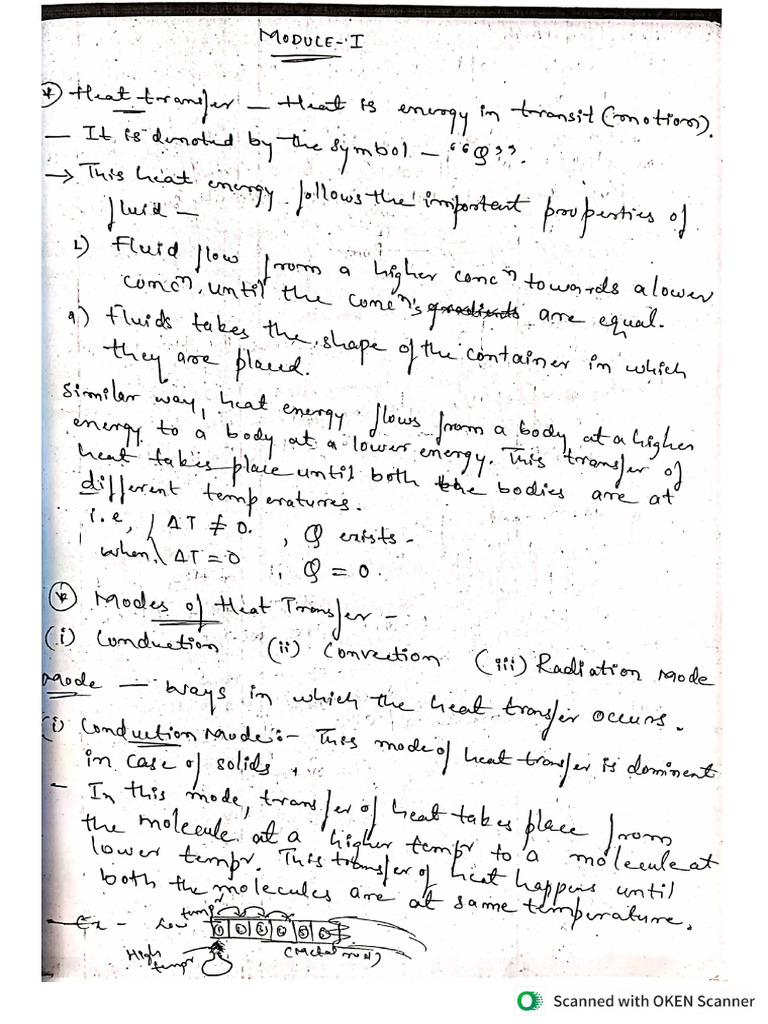 MODULE-I
* Heat transfer - Heat is energy in transit (motion).
- It is denoted by the symbol - "Q".
→ This heat energy follows the important properties of
fluid -
1) Fluid flow from a higher concn towards a lower
concn. until the concn's gradients are equal.
2) Fluids takes the shape of the container in which
they are placed.
Similar way, heat energy flows from a body at a higher
energy to a body at a lower energy. This transfer of
heat takes place until both the bodies are at
different temperatures.
i.e, ΔT ≠ 0. , Q exists -
when ΔT = 0 , Q = 0.
* Modes of Heat Transfer -
(i) Conduction (ii) Convection (iii) Radiation Mode
Mode - ways in which the heat transfer occurs.
(i) Conduction Mode :- This mode of heat transfer is dominent
in case of solids.
- In this mode, transfer of heat takes place from
the molecule at a higher tempr to a molecule at
lower tempr. This transfer of heat happens until
both the molecules are at same temperature.
- Ex - low tempr
① ② ③ ④ ⑤ ⑥
High tempr (Metal rod)
Scanned with OKEN Scanner